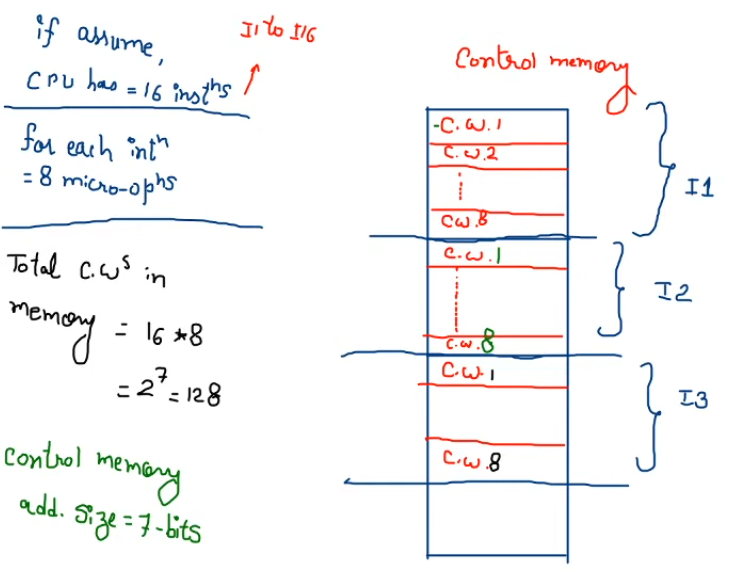 if assume,
I1 to I16
CPU has = 16 insthⁿs
for each intⁿ
= 8 micro-opⁿs
Total C.Wˢ in
memory = 16 * 8
= 2⁷ = 128
Control memory
add. size = 7-bits
Control memory
C.W.1
C.W.2
CW.8
I1
C.W.1
C.W.8
I2
C.W.1
C.W.8
I3